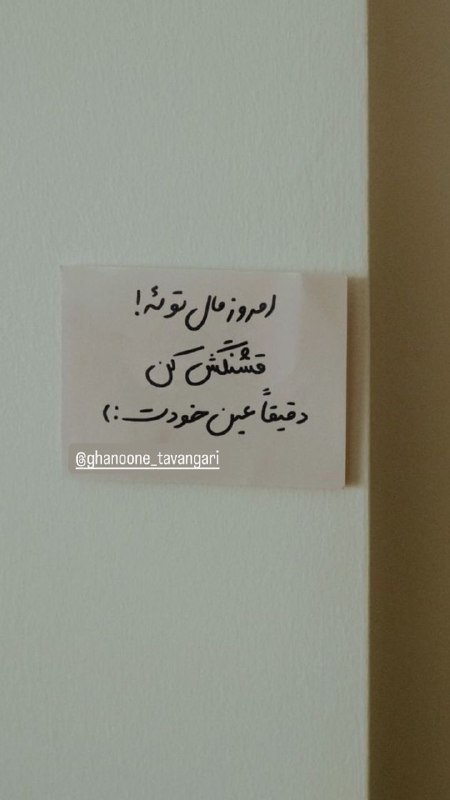 امروز مال توئه!
قشنگش کن
دقیقاً عین خودت :)
@ghanoone_tavangari